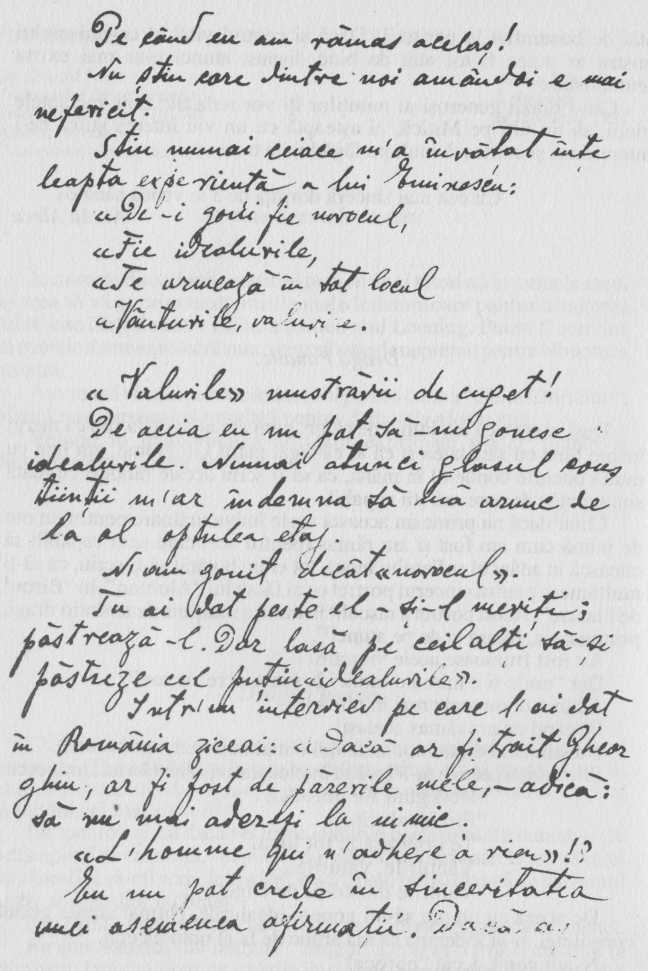 Pe când eu am rămas acelaș!
Nu știu care dintre noi amândoi e mai
nefericit.
Știu numai ceiace m'a învătat înțe
leapta experiență a lui Eminescu:
«De-i goni fie norocul,
«Fie idealurile,
«Te urmează în tot locul
«Vânturile, valurile.
«Valurile» mustrării de cuget!
De aceia eu nu pot să-mi gonesc
idealurile. Numai atunci glasul cons
tiinții m'ar îndemna să mă arunc de
la al optulea etaj.
N'am gonit decât «norocul».
Tu ai dat peste el – și-l meriți;
păstrează-l. Dar lasă pe ceilalți să-și
păstreze cel puțin «idealurile».
Intr'un interviev pe care l'ai dat
în România ziceai: «Dacă ar fi trait Gheor
ghiu, ar fi fost de parerile mele, – adică:
să nu mai aderezi la nimic.
«L'homme qui n'adhère a rien»!?
Eu nu pot crede în sinceritatea
unei asemenea afirmatii. Daca ai